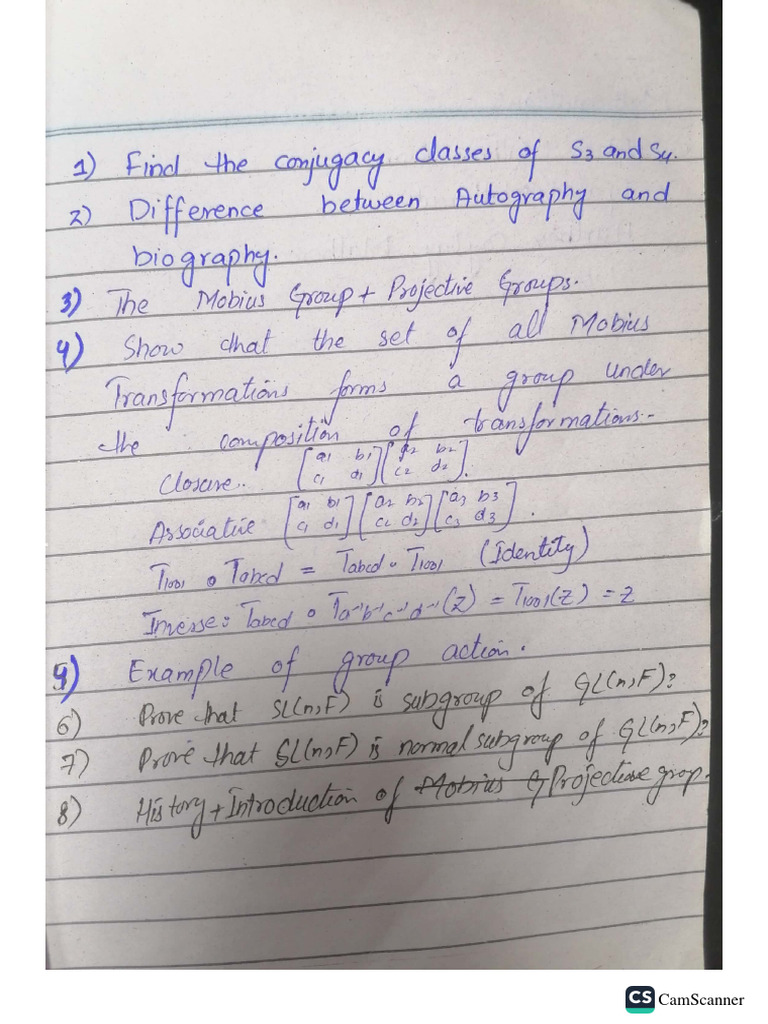 1) Find the conjugacy classes of S3 and S4.
2) Difference between Autography and
biography.
3) The Mobius Group + Projective Groups.
4) Show that the set of all Mobius
Transformations forms a group under
the composition of transformations:-
Closure.. [a1 b1 c1 d1] [a2 b2 c2 d2].
Associative [a1 b1 c1 d1] [a2 b2 c2 d2] [a3 b3 c3 d3].
T1001 o Tabcd = Tabcd o T1001 (Identity)
Inverse: Tabcd o Ta⁻¹b⁻¹c⁻¹d⁻¹(z) = T1001(z) = z
5) Example of group action.
6) Prove that SL(n,F) is subgroup of GL(n,F)?
7) Prove that SL(n,F) is normal subgroup of GL(n,F)?
8) History + Introduction of Mobius G Projective grop.
CS CamScanner